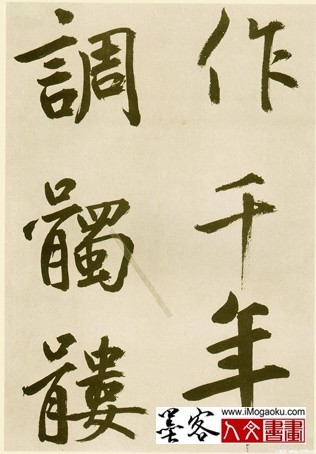 作千年
調髑髏
墨客
www.iMogaoku.com
人文書畫